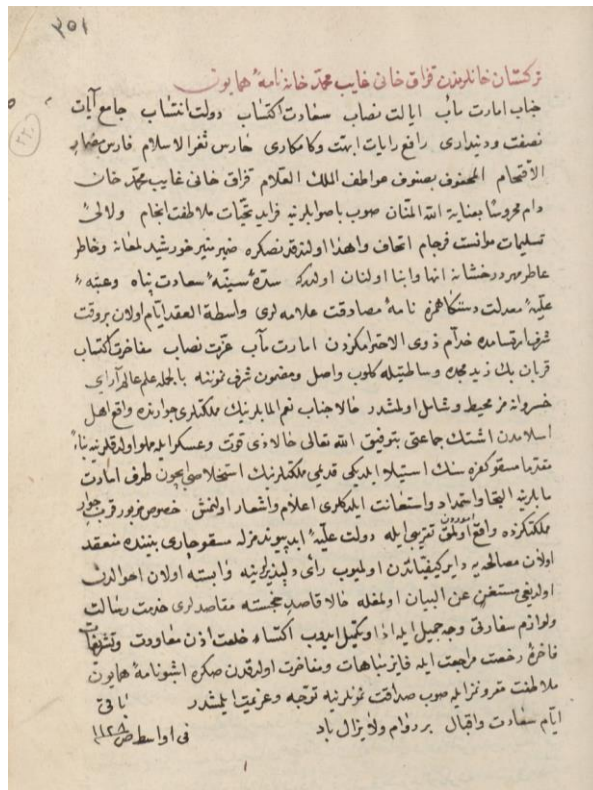 ٣٥١
تركستان خانلرندن قزاق خانى غايب محمد خانه نامهٔ همايون
جناب امارت مآب ايالت نصاب سعادت اكتساب دولت انتساب جامع آيات
نصفت وديندارى رافع رايات ابهت وكامكارى حارس ثغر الاسلام فارس مضمار
الاقتحام المحفوف بصنوف عواطف الملك العلام قزاق خانى غايب محمد خان
دام محروسا بعناية الله المنان صوب باصوابلرينه فرايد تحيات ملاطفت انجام ولآلئ
تسليمات موانست فرجام اتحاف واهدا اولندقدنصكره ضمير منير خورشيد لمعانه وخاطر
عاطر مهر درخشانه انها وانبا اولنان اولدركه سدهٔ سنيهٔ سعادت پناه وعتبهٔ
عليهٔ معدلت دستكاهمزه نامهٔ مصادقت علامه لرى واسطة العقد ايام اولان بر وقت
شرف ارتسامده خدام ذوى الاحترامكزدن امارت مآب عزت نصاب مفاخرت اكتساب
قربان بك زيد مجده وساطتيله كلوب واصل ومضمون شرف نمونه سى بالجمله علم عالم آراى
خسروانه مز محيط وشامل اولمشدر حالا جناب نعم المآبلرينك مملكتلرى جوارنده واقع اهل
اسلامدن اشتك جماعتى بتوفيق الله تعالى حالا ذى قوت وعسكر ايله مملو اولدقلرينه بناء
مقدما مسقو كفره سنك استيلا ايلدكى قديمى مملكتلرينك استخلاصى ايچون طرف امارت
مآبلرينه التجا واستمداد واستعانت ايلدكلرى اعلام واشعار اولنمش خصوص مزبور قرب جوار
مملكتكزده واقع اموردن اولمق تقريبى ايله دولت عليهٔ ابد پيوندمزله مسقو چارى بيننده منعقد
اولان مصالحه يه داير كيفياتدن اولميوب رأى دلپذيرلرينه وابسته اولان احوالدن
اولديغى مستغنى عن البيان اولمغله حالا قاصد خجسته مقاصدلرى خدمت رسالت
ولوازم سفارتى وجه جميل ايله ادا وتكميل ايدوب اكتساء خلعت اذن معاودت وتشريفات
فاخرهٔ رخصت مراجعت ايله فايز مباهات ومفاخرت اولدقدن صكره اشبو نامهٔ همايون
ملاطفت مقرونمزايله صوب صداقت نمونلرينه توجه وعزيمت ايلمشدر باقى
ايام سعادت واقبال بر دوام ولا يزال باد فى اواسط ض ١١٢٨